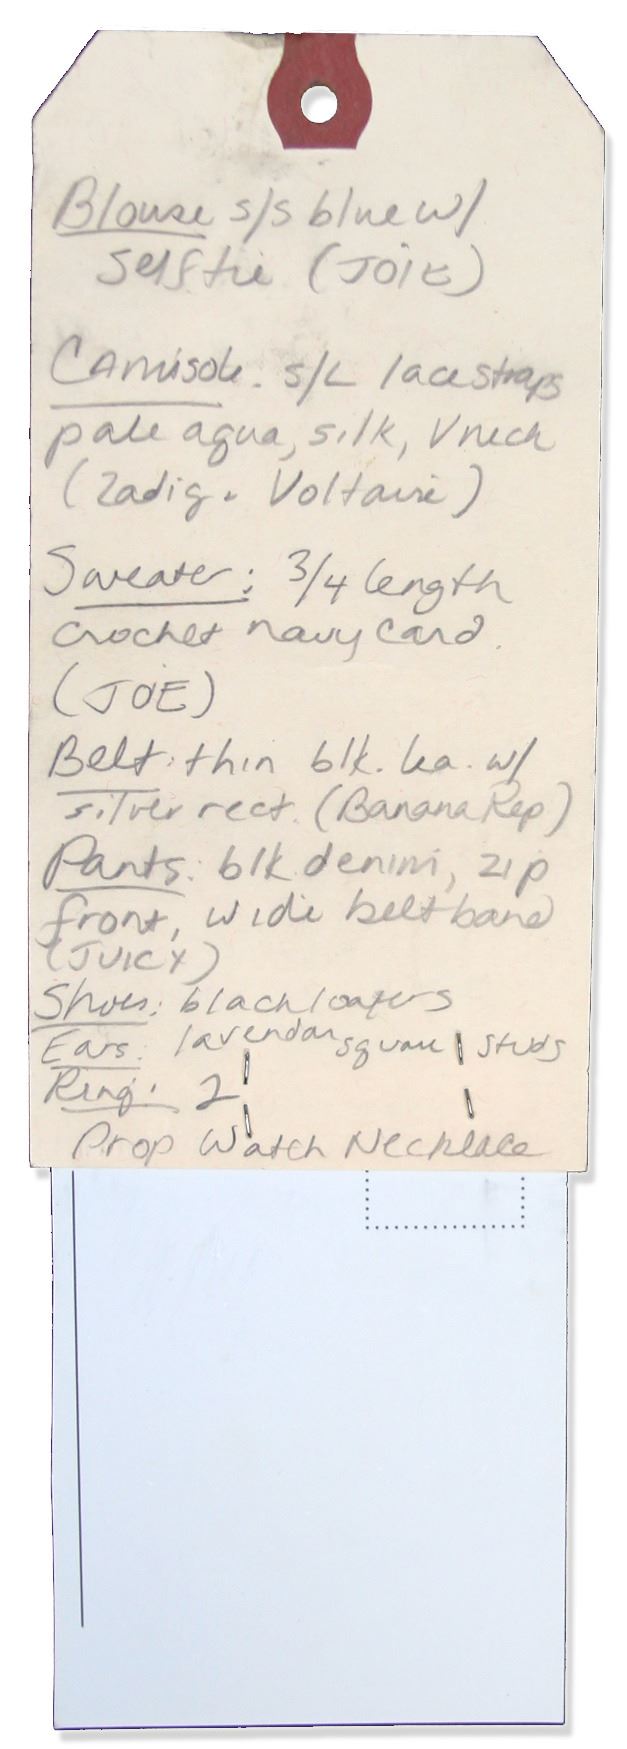 Blouse s/s blue w/
self tie (JOIE)
Camisole. s/L lace straps
pale aqua, silk, Vneck
(Zadig & Voltaire)
Sweater: 3/4 length
crochet navy card.
(JOE)
Belt: thin blk. lea. w/
silver rect. (Banana Rep)
Pants: blk denim, zip
front, wide belt band
(JUICY)
Shoes: black loafers
Ears: lavendar square studs
Ring: 2
Prop Watch Necklace